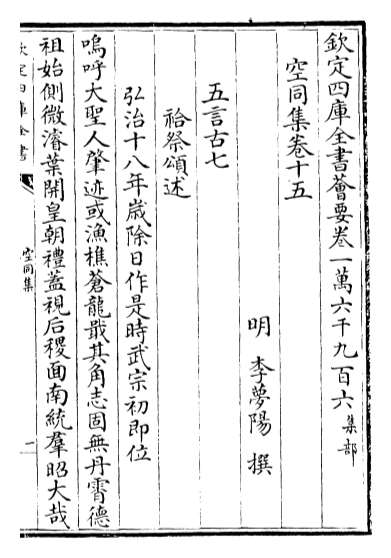 欽定四庫全書薈要卷一萬六千九百六 集部
空同集卷十五
明 李夢陽 撰
五言古七
祫祭頌述
弘治十八年歲除日作是時武宗初即位
嗚呼大聖人肇迹或漁樵蒼龍戢其角志固無丹霄德
祖始側微濬葉開皇朝禮蓋視后稷面南統羣昭大哉
欽定四庫全書
空同集
一